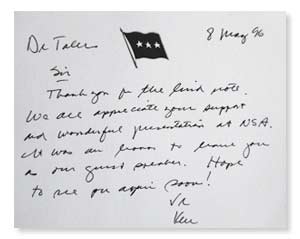 8 May 96
Dr Taler
Sir
Thank you for the kind note.
We all appreciate your support
and wonderful presentation at NSA.
It was an honor to have you
as our guest speaker. Hope
to see you again soon!
VR
Ken